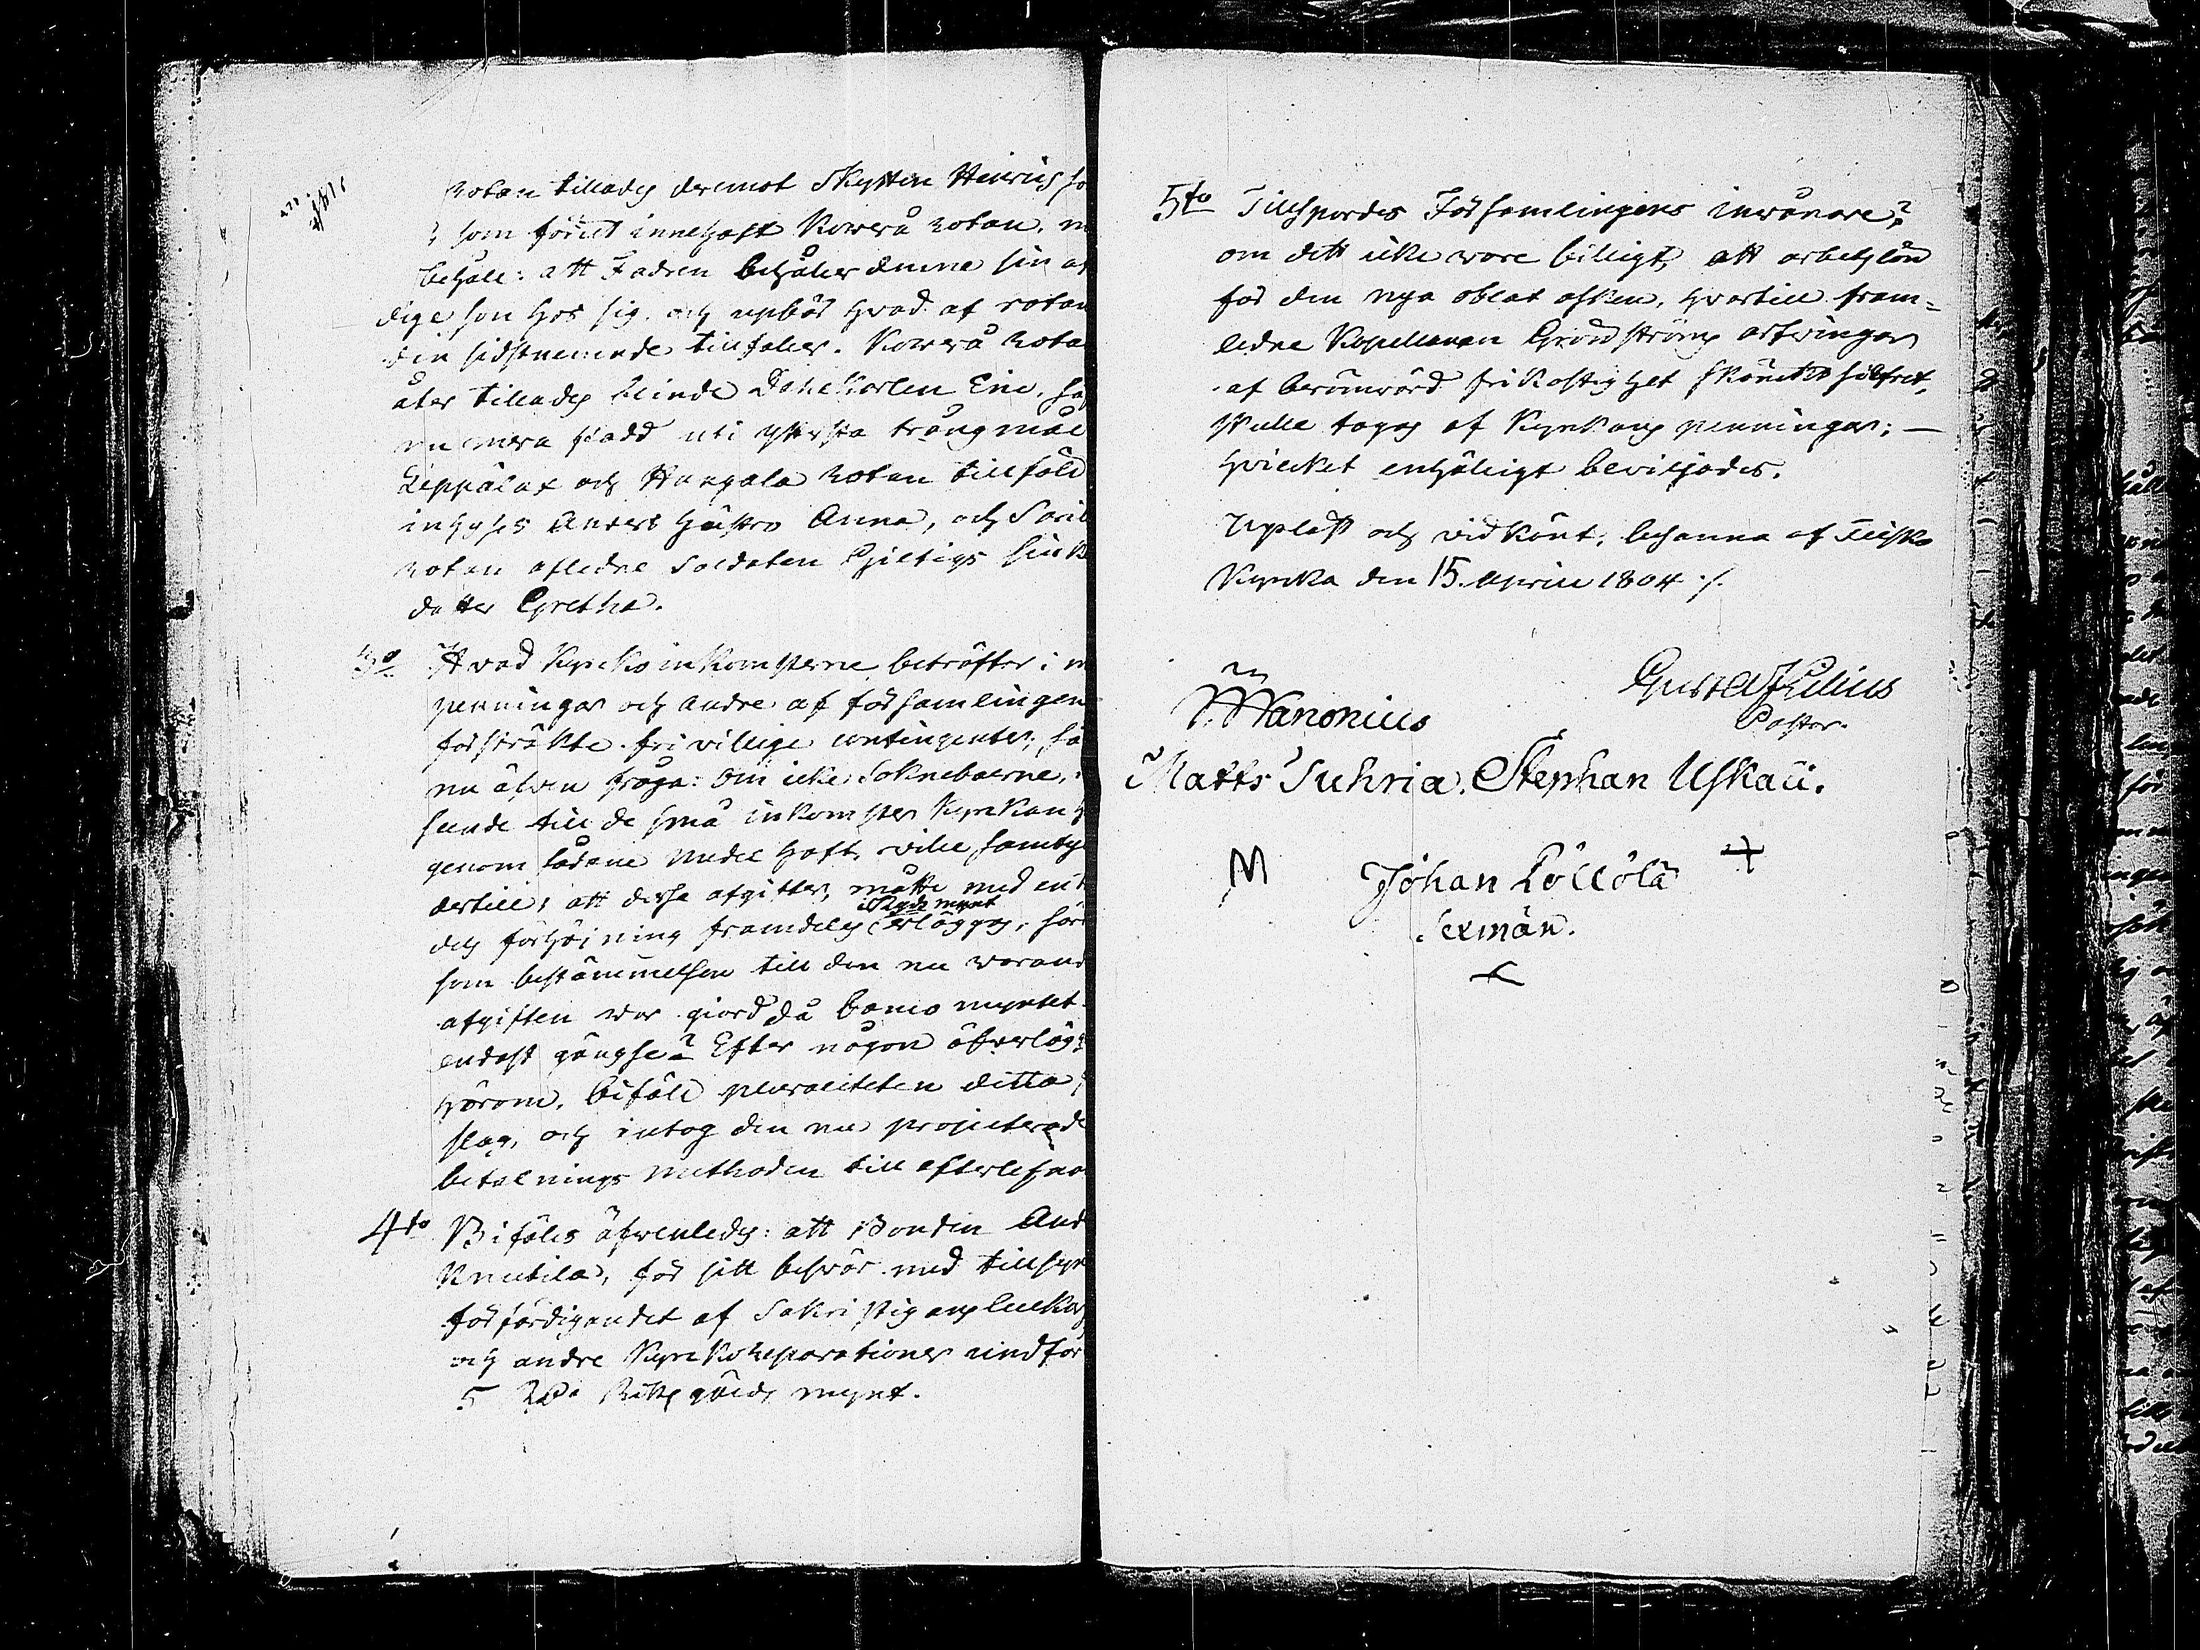 rotan tillades deremot Skytten Henrics so
som förut innehaft Kowerå rotan, m
behåll: att Fadren behåller denne sin
dige son hos sig, och upbär hvad af rotan
den sidstnemnde tillfaller. Kowerå rota
åter tillades blinde Dahlkarlen Eric.
nu mera stadd uti yttersta trångmål
Leppälax och Hangala rotan tillföll
inhyses Anders hustro Anna, och
rotan aflidne Soldaten Giltigs
dotter Gretha.
3o Hvad Kyrko inkomsterne beträffar i
penningar och andre af församlingen
försträkte frivillige contingenter, så
nu äfven fråga: Om icke Sokneboerne,
seende till de små inkomster Kyrkan
genom sådane medel haft, wille samtyc
dertill, att dessa afgifter, måtte med en
i Rgds mynt
dels förhöjning framdeles erläggas, såsom
som bestämmelsen till den nu warand
afgiften war giord då banco myntet
endast gängse? Efter någon öfverlägg
härom, biföll pluraliteten detta
slag, och intog den nu projecterade
betalnings methoden till efterlefnad
4to Bifölls äfwenledes: att Bonden And
Knutila, för sitt beswär med tillsyn
förfärdigandet af Sakristigans
och andre Kyrko reparationer undfår
5 Rdr Riksgälds mynt.
5to Tillspordes Församlingens inwånare?
om dett icke wore billigt, att arbetslön
för den nya oblat asken, hvartill fram-
ledne Kapellanen Grönströms arfwingar
af berömwärd frikostighet skänkt silfret,
skulle tagas af Kyrkans penningar; —
hvilcket enhälligt beviljades.
Upläst och vidkänt, besanna af
Kyrka den 15. Aprill 1804 ./.
Gustaf Lilius
Pastor.
Wanonius
Matts Juhria. Stephan Uskali.
M Johan Pöllölä +
Sexmän.